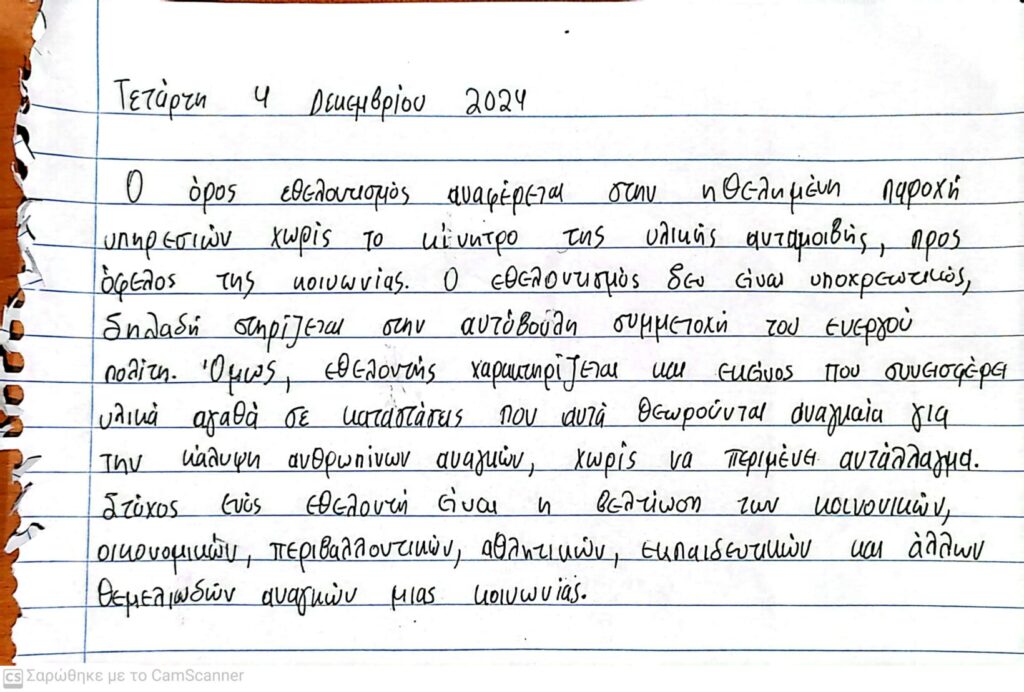 Τετάρτη 4 Δεκεμβρίου 2024
Ο όρος εθελοντισμός αναφέρεται στην ηθελημένη παροχή
υπηρεσιών χωρίς το κίνητρο της υλικής ανταμοιβής, προς
όφελος της κοινωνίας. Ο εθελοντισμός δεν είναι υποχρεωτικός,
δηλαδή στηρίζεται στην αυτόβουλη συμμετοχή του ενεργού
πολίτη. Όμως, εθελοντής χαρακτηρίζεται και εκείνος που συνεισφέρει
υλικά αγαθά σε καταστάσεις που αυτά θεωρούνται αναγκαία για
την κάλυψη ανθρωπίνων αναγκών, χωρίς να περιμένει αντάλλαγμα.
Στόχος ενός εθελοντή είναι η βελτίωση των κοινονικών,
οικονομικών, περιβαλλοντικών, αθλητικών, εκπαιδευτικών και άλλων
θεμελιωδών αναγκών μιας κοινωνίας.
CS Σαρώθηκε με το CamScanner